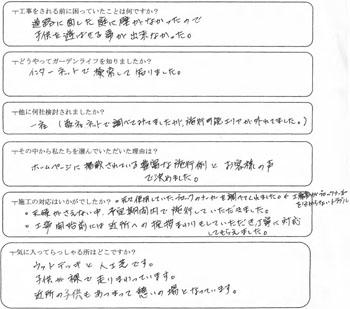 工事をされる前に困っていたことは何ですか?
道路に面した庭に塀がなかったので
子供を遊ばせる事が出来なかった。
どうやってガーデンライフを知りましたか?
インターネットで検索して知りました。
他に何社検討されましたか?
一社(数社ネットで調べてみましたが、施行可能エリアが外れてました。)
その中から私たちを選んでいただいた理由は?
ホームページに掲載されている豊富な施行例とお客様の声
で決めました。
施工の対応はいかがでしたか?
のブロックのメーカーを調べてくれました。
天候がさえない中、予定期間内で施行していただきました。
工事開始前には近所への挨拶まわりもしていただき、丁寧に対応
してもらえました。
気に入ってらっしゃる所はどこですか?
ウッドデッキと人工芝です。
子供が裸で走りまわっています。
近所の子供もあつまって憩いの場となっています。